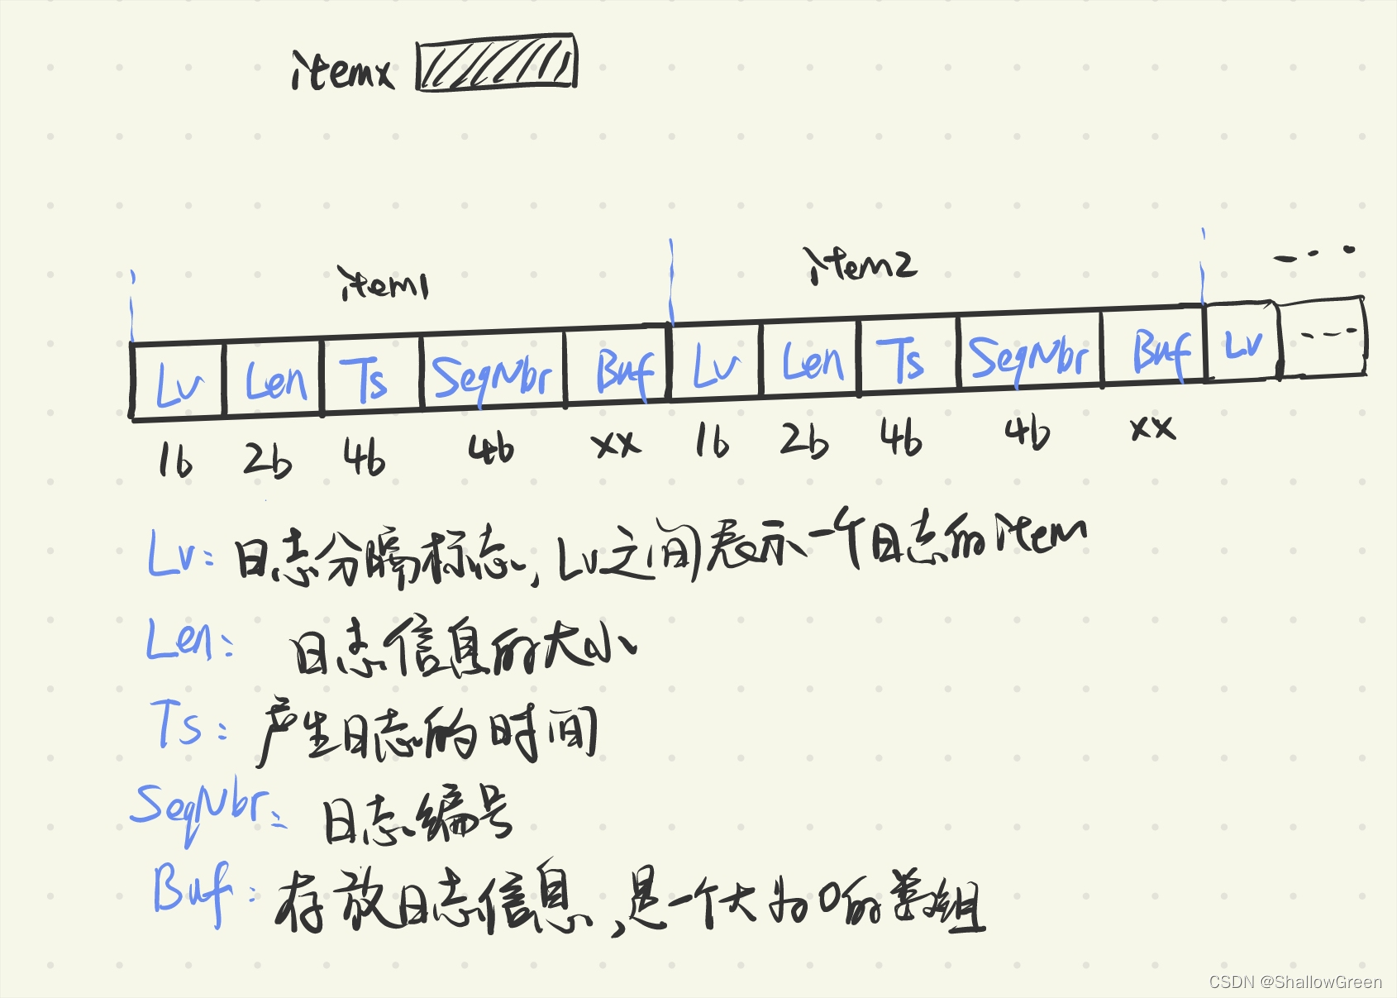 itemx
item1 item2 ---
Lv Len Ts SeqNbr Buf Lv Len Ts SeqNbr Buf Lv ---
1b 2b 4b 4b xx 1b 2b 4b 4b xx
Lv: 日志分隔标志, Lv之间表示一个日志的item
Len: 日志信息的大小
Ts: 产生日志的时间
SeqNbr: 日志编号
Buf: 存放日志信息, 是一个大为0的数组
CSDN @ShallowGreen